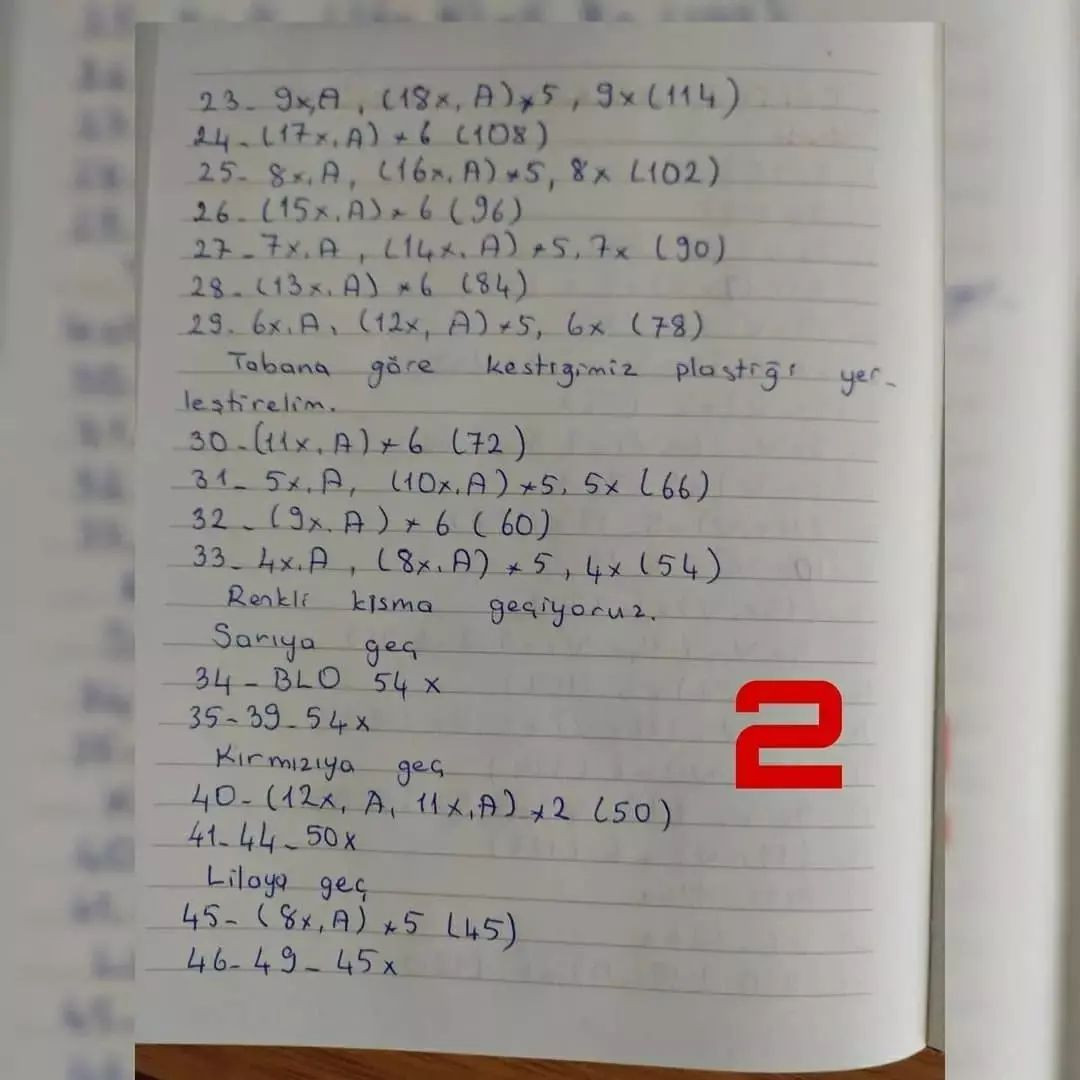 23- 9x,A, (18x, A)*5, 9x (114)
24- (17x, A) * 6 (108)
25- 8x, A, (16x, A)*5, 8x (102)
26- (15x, A)* 6 (96)
27- 7x, A, (14x, A) *5, 7x (90)
28- (13x, A) *6 (84)
29. 6x, A, (12x, A) *5, 6x (78)
Tabana göre kestiğimiz plastiği yer-
leştirelim.
30- (11x, A) * 6 (72)
31- 5x, A, (10x, A) *5, 5x (66)
32- (9x, A) * 6 (60)
33- 4x, A, (8x, A) * 5, 4x (54)
Renkli kısma geçiyoruz.
Sarıya geç
34- BLO 54 x
35-39- 54x
Kırmızıya geç
40- (12x, A, 11x, A) *2 (50)
41-44- 50x
Lilaya geç
45- (8x, A) *5 (45)
46-49- 45x
2